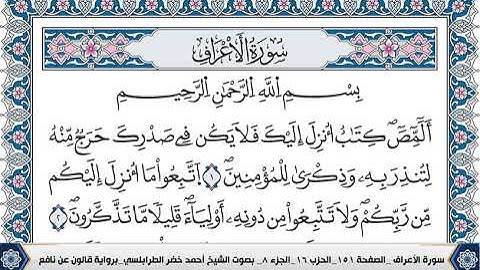 سُورَةُ الْأَعْرَافِ
بِسْمِ اللَّهِ الرَّحْمَٰنِ الرَّحِيمِ
أَلَٓمِّٓصَٓ كِتَٰبٌ أُنزِلَ إِلَيْكَ فَلَا يَكُن فِے صَدْرِكَ حَرَجٌ مِّنْهُ
لِتُنذِرَ بِهِۦ وَذِكْرَىٰ لِلْمُؤْمِنِينَۖ ١ اَ۪تَّبِعُواْ مَا أُنزِلَ إِلَيْكُم
مِّن رَّبِّكُمْۖ وَلَا تَتَّبِعُواْ مِن دُونِهِۦ أَوْلِيَآءَۖ قَلِيلًا مَّا تَذَّكَّرُونَۖ ٢
سورة الأعراف _الصفحة ١٥١_ الحزب ١٦_ الجزء ٨_ بصوت الشيخ أحمد خضر الطرابلسي_ برواية قالون عن نافع